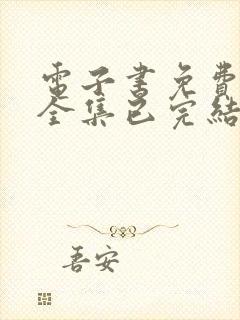 電子書免費
全集已完結
吾安